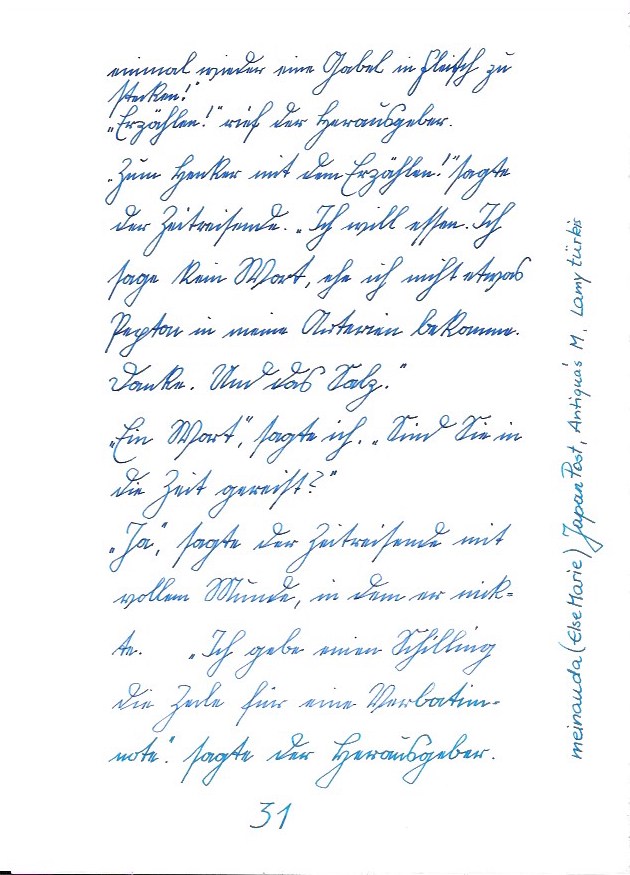 einmal wieder eine Gabel in Fleisch zu
stecken!"
„Erzählen!" rief der Herausgeber.
„Zum Henker mit dem Erzählen!" sagte
der Zeitreisende. „Ich will essen. Ich
sage kein Wort, ehe ich nicht etwas
Pepton in meine Arterien bekomme.
Danke. Und das Salz."
„Ein Wort", sagte ich. „Sind Sie in
die Zeit gereist?"
„Ja", sagte der Zeitreisende mit
vollem Munde, in dem er nick=
te. „Ich gebe einen Schilling
die Zeile für eine Verbatim-
note". sagte der Herausgeber.
31
meinauda (Else Marie) Japan Post, Antiquás M, Lamy türkis